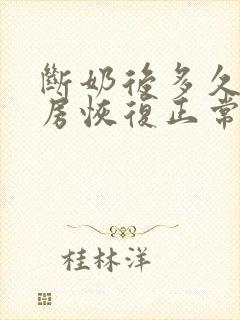 斷奶後多久
房恢復正常
桂林洋